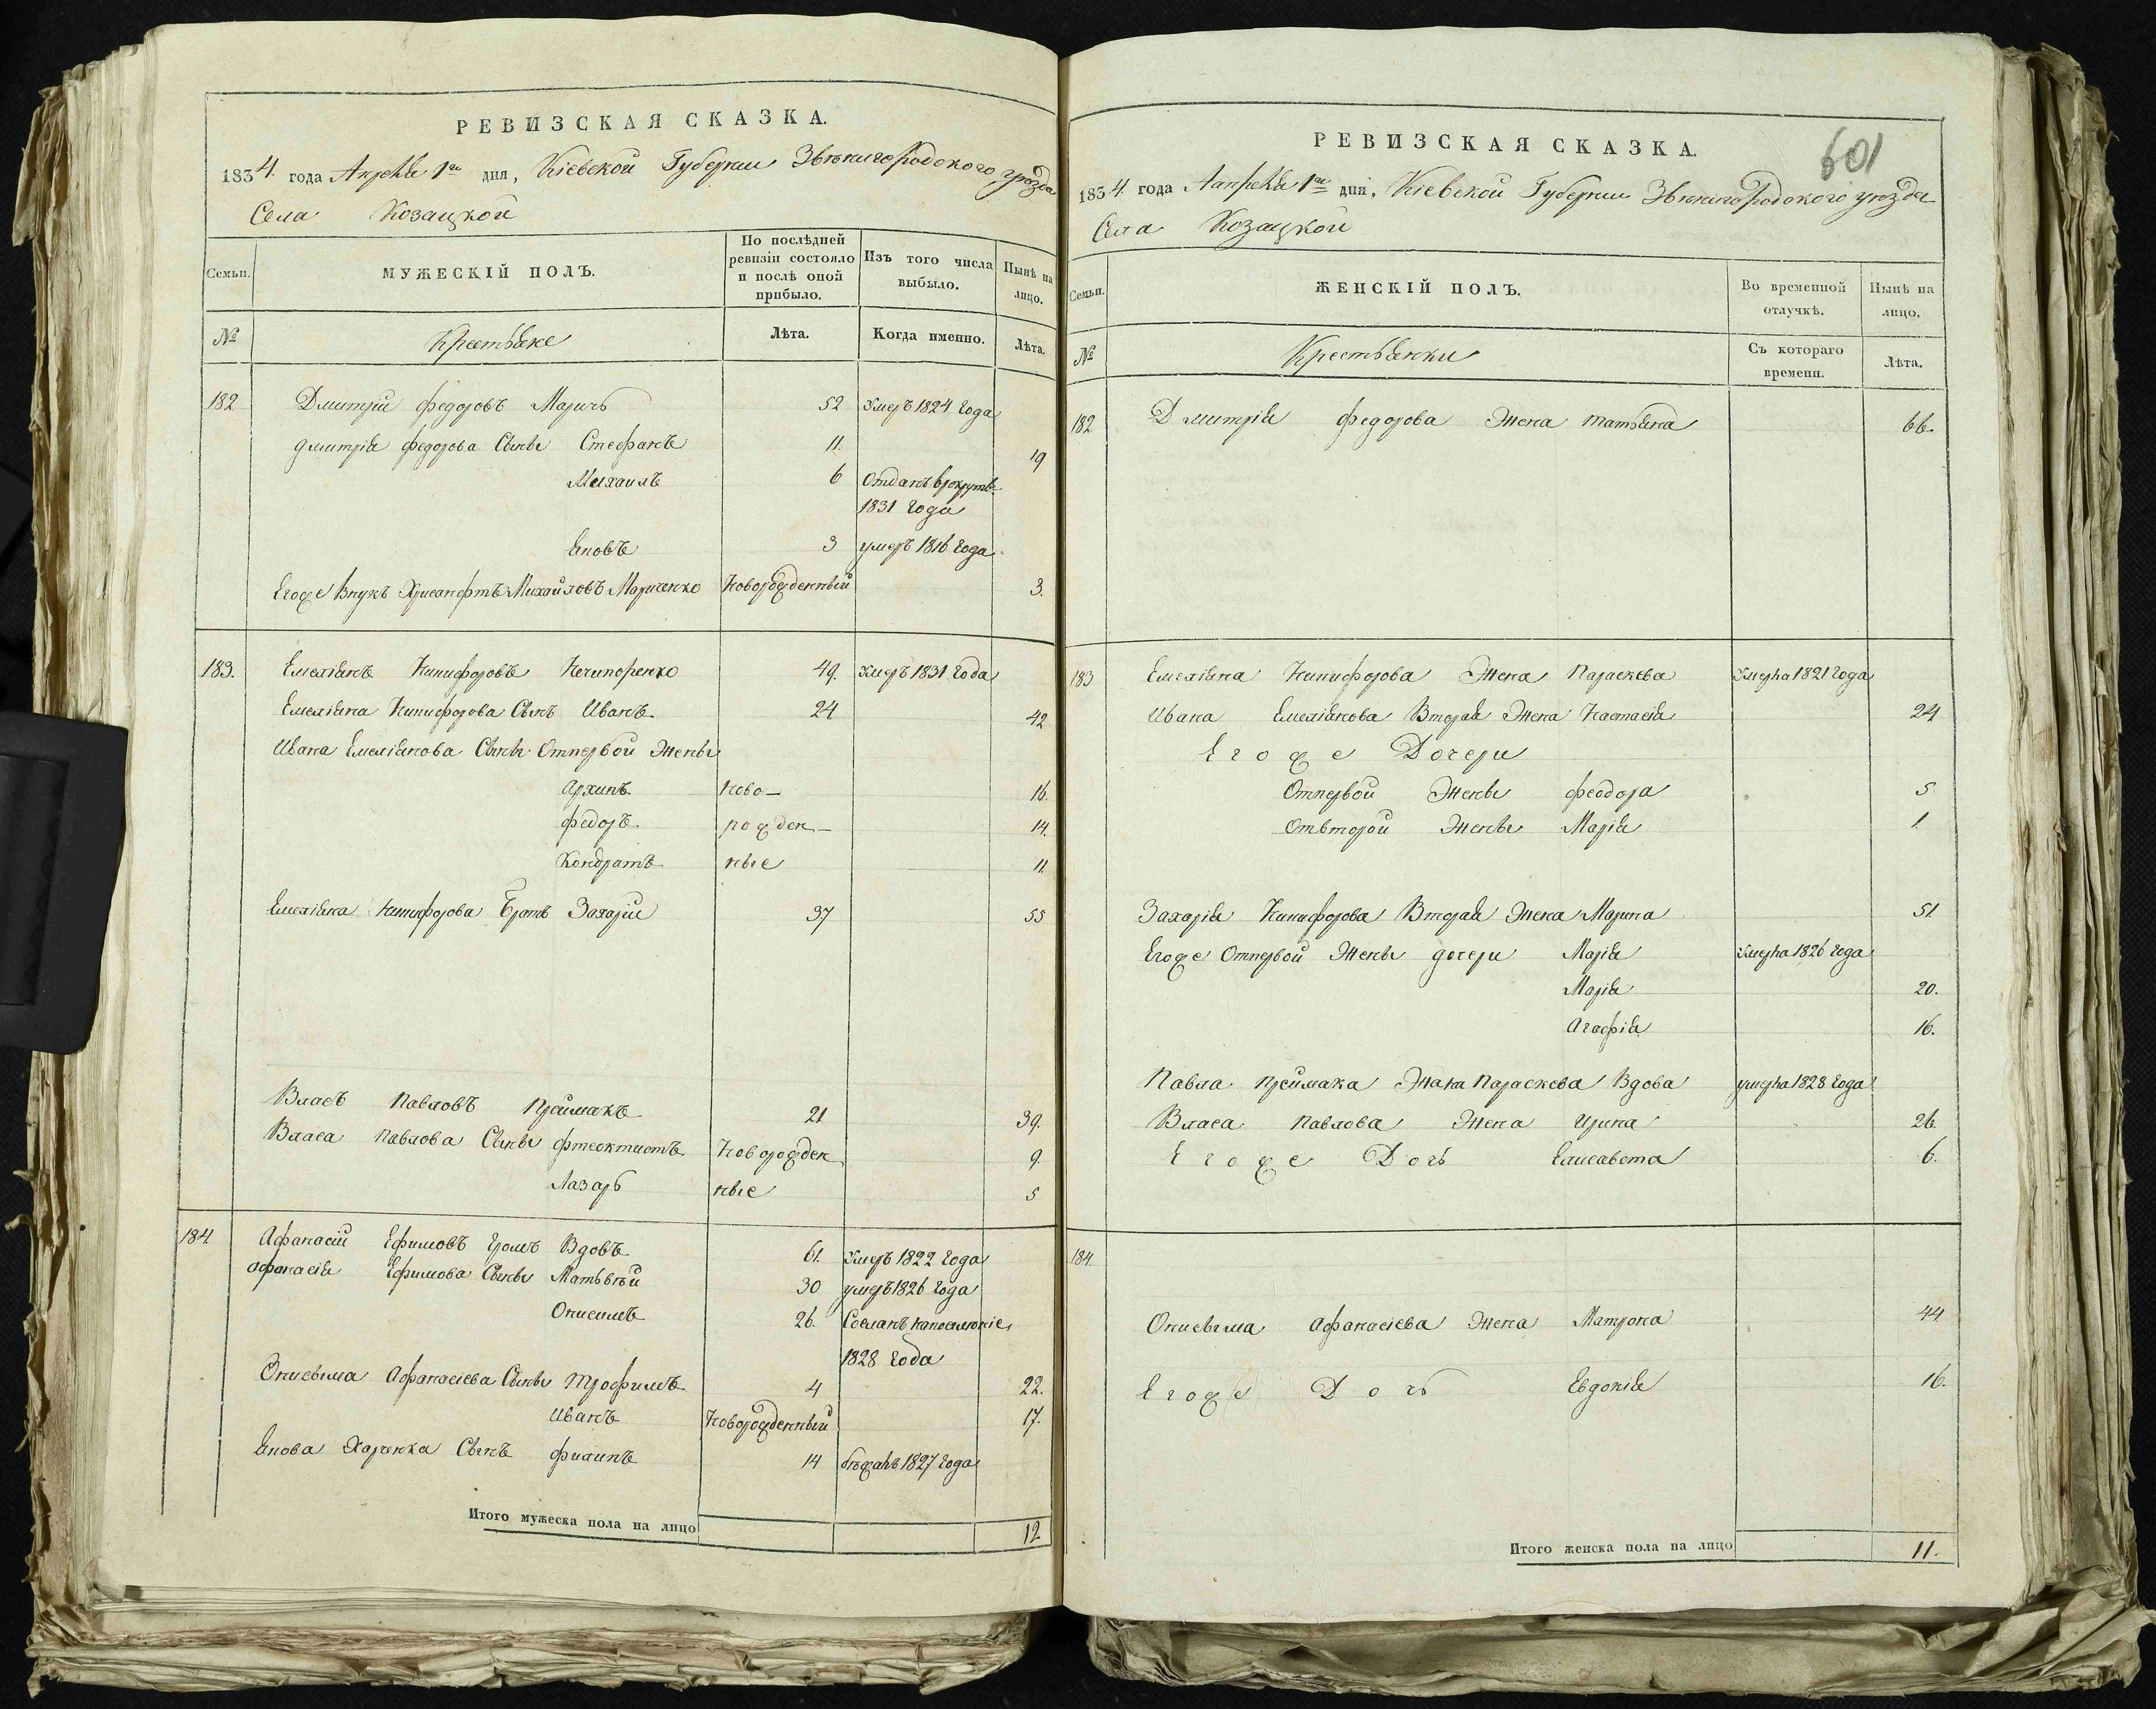 РЕВИЗСКАЯ СКАЗКА.
1834. года Апрѣля 1го дня, Кіевской Губерніи Звѣнигородского уѣзда
Села Козацкой
Семьи.
МУЖЕСКІЙ ПОЛЪ.
По послѣдней ревизіи состояло и послѣ оной прибыло.
Изъ того числа выбыло.
Нынѣ на лицо.
№
Крестьяне
Лѣта.
Когда именно.
Лѣта.
182 Дмитрій Федоровъ Маричъ 52 Умеръ 1824 Года
Дмитрія Федорова Сыны Стефанъ 11. 19
Михаилъ 6 Отданъ врекруты
1831 Года
Яковъ 3 умеръ 1816 Года
Егоже Внукъ Хрисанфтъ Михайловъ Мариченко Новорожденный 3.
183. Емеліянъ Никифоровъ Нечипоренко 49. Умеръ 1831 Года
Емеліяна Никифорова Сынъ Иванъ 24 42
Ивана Емеліянова Сыны Отпервой Жены
Архипъ Ново- 16.
Федоръ рожден- 14.
Кондратъ ные 11.
Емеліяна Никифорова Братъ Захарій 37 55
Власъ Павловъ Преймакъ 21 39.
Власа Павлова Сыны Фтеоктистъ Новорожден 9.
Лазарь ные 5
184. Афанасій Ефимовъ Вдовъ 61. Умеръ 1822 Года
Афанасія Ефимова Сыны Матьвѣй 30 умеръ 1826 Года
Онисимъ 26. Сосланъ напоселеніе
1828 Года
Онисьима Афанасіева Сыны Трофимъ 4 22.
Иванъ Новорожденный 17.
Якова Харченка Сынъ Филипъ 14 бѣжалъ 1827 Года
Итого мужеска пола на лицо 12
601
РЕВИЗСКАЯ СКАЗКА.
1834. года Аапрѣля 1го дня, Кіевской Губерніи Звѣнигородского уѣзда
Села Козацкой
Семьи.
ЖЕНСКІЙ ПОЛЪ.
Во временной отлучкѣ.
Нынѣ на лицо.
№
Крестьянки
Съ котораго времени.
Лѣта.
182. Дмитрія Федорова Жена Татьяна 66.
183 Емеліяна Никифорова Жена Параскева Умерла 1821 Года
Ивана Емеліянова Вторая Жена Настасія 24
Егоже Дочери
Отпервой Жены Феодора 5
Отвторой Жены Марія 1.
Захарія Никифорова Вторая Жена Марина 51.
Егоже Отпервой Жены дочери Марія Умерла 1826 Года
Марія 20.
Агафія 16.
Павла Преймака Жана Параскева Вдова умерла 1828 Года
Власа Павлова Жена Ирина 26.
Егоже Дочь Елисавета 6.
184.
Онисьима Афанасіева Жена Матрона 44
Егоже Дочь Евдокія 16.
Итого женска пола на лицо 11.